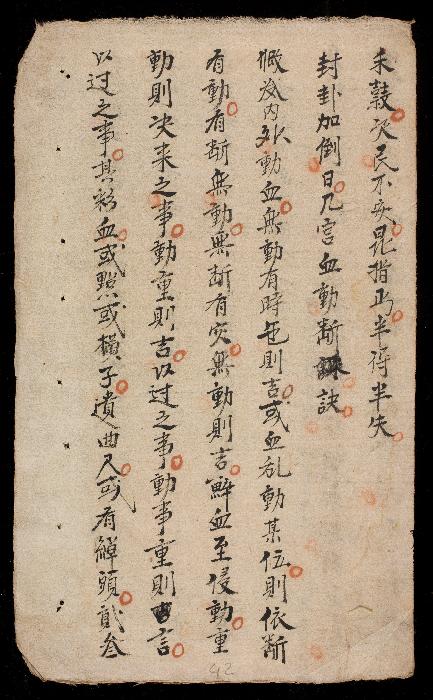 禾穀次民不安昆指占半得半失
封卦加倒日凡宮血動斷訣
概及内外動血無動有時色則吉或血乱動某伍則依斷
有動有斷無動無斷有灾無動則吉解血至侵動重
動則决来之事動重則吉以过之事動事重則吉言
以过之事其彩血或點或横子遺曲尺或有觧頭貳叁
42